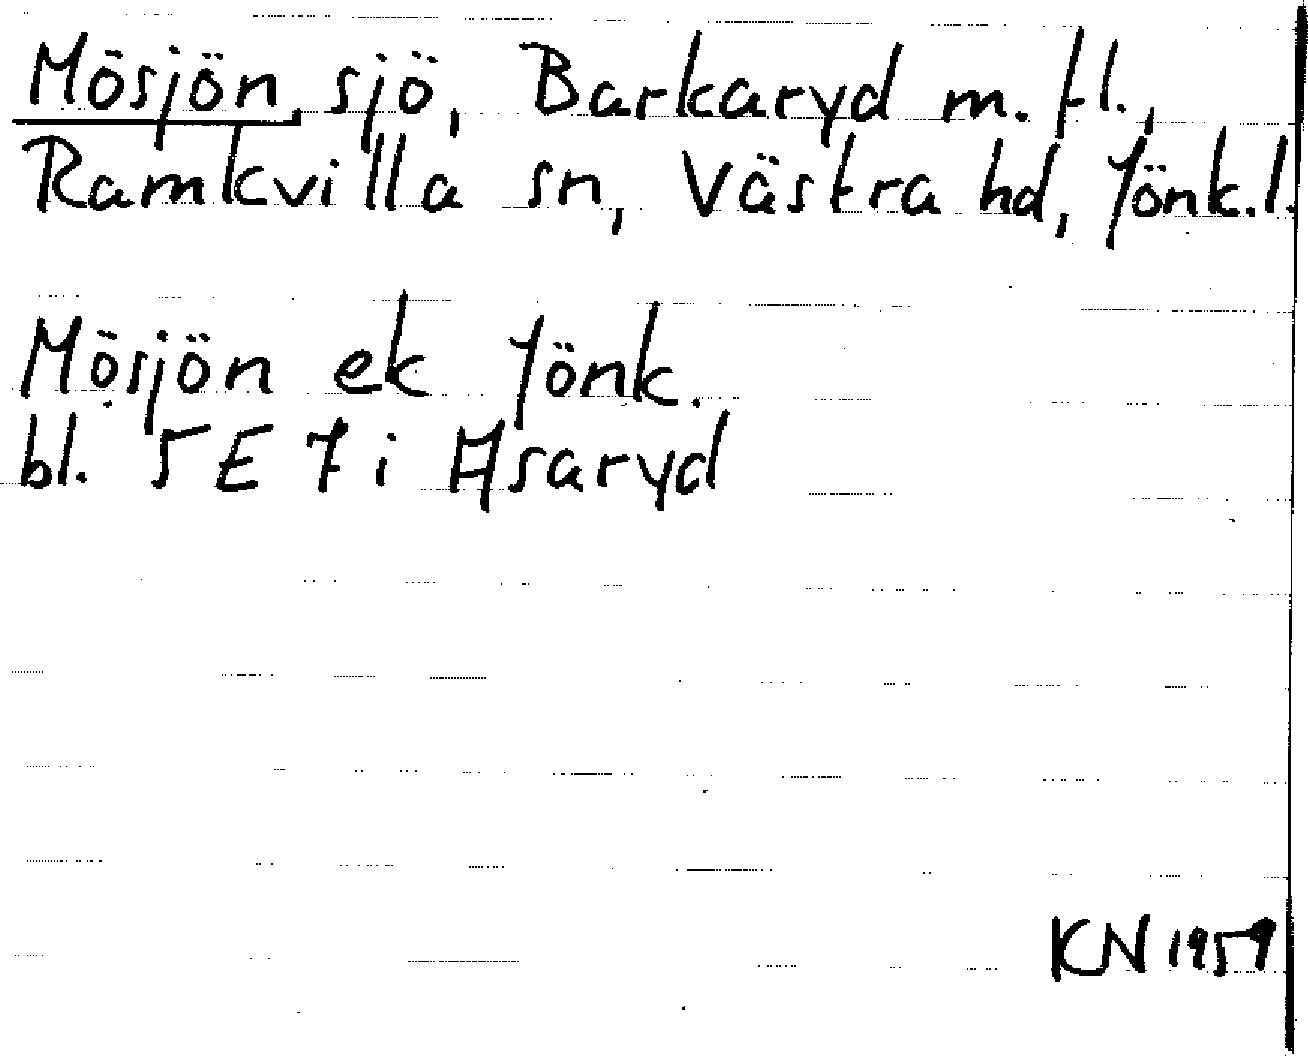 Mösjön, sjö, Barkaryd m. fl.,
Ramkvilla sn, Västra hd, Jönk.l.
Mösjön ek Jönk.
bl. 5 E 7 i Asaryd
KN 1959